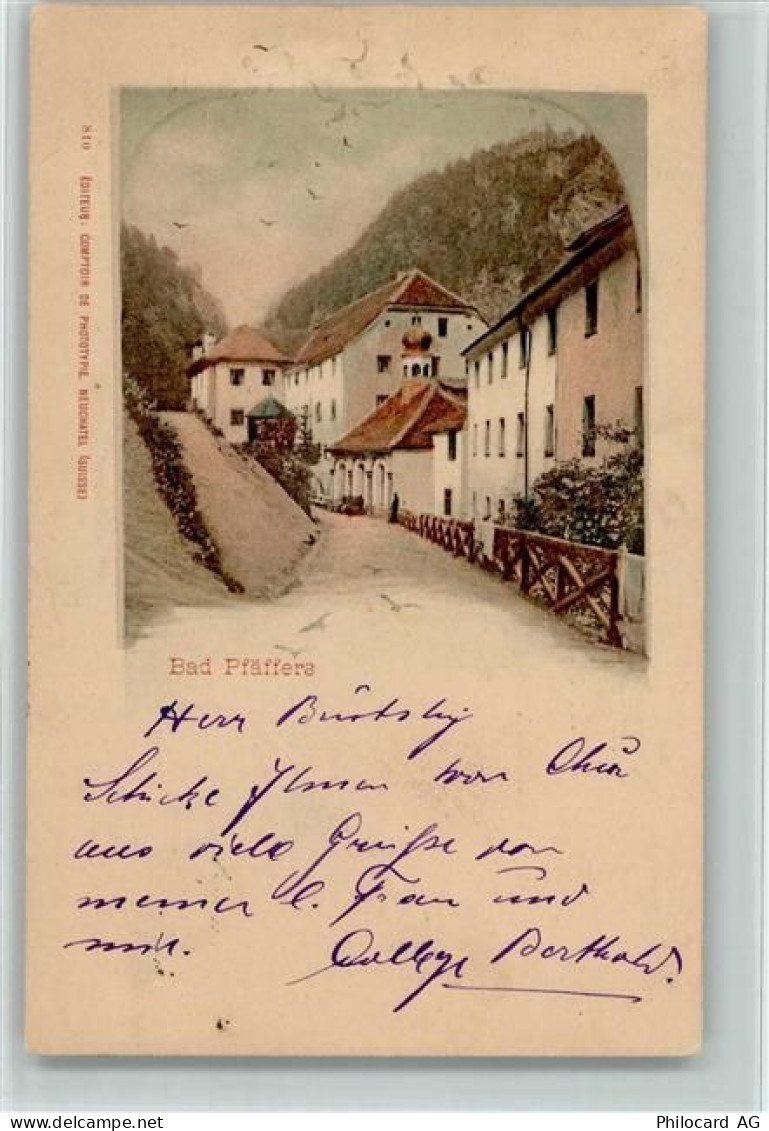 810 ÉDITEUR: COMPTOIR DE PHOTOTYPIE, NEUCHATEL (SUISSE)
Bad Pfäffers
Herr
Schicke Ihnen von Chur
aus viele Grüsse von
meiner l. Frau und
mir. College Berthold.
Philocard AG